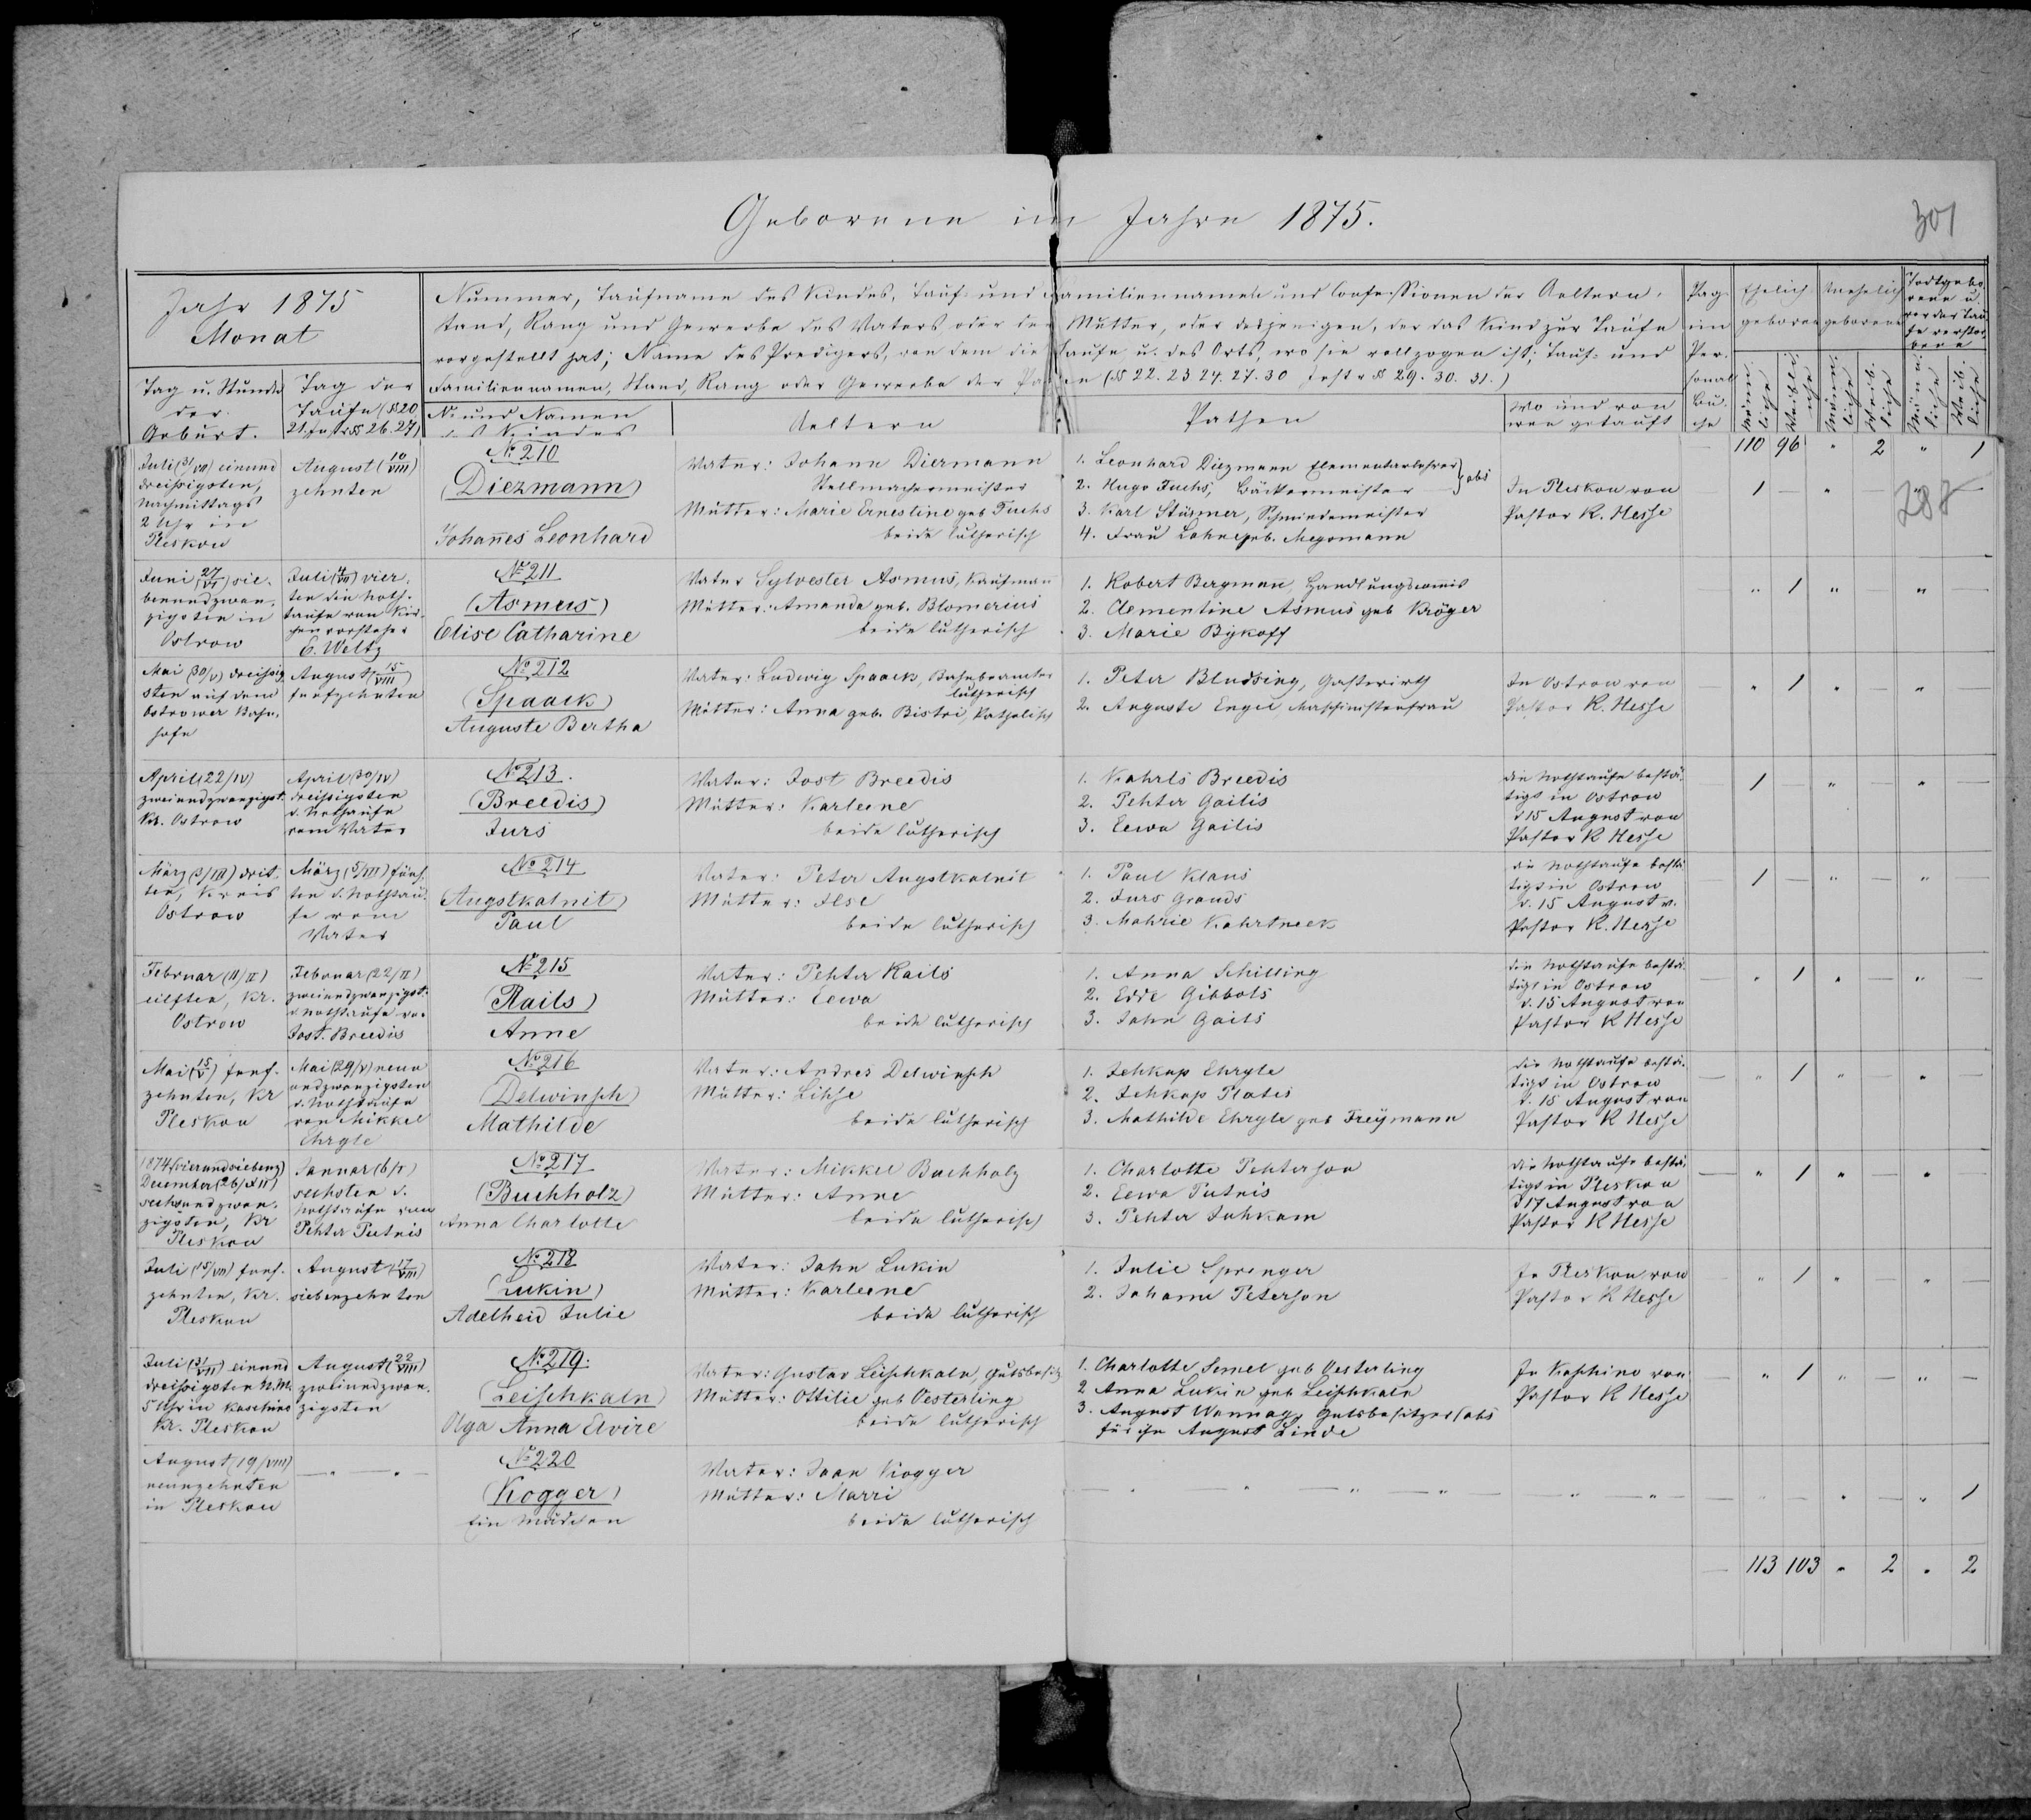 Geborene im Jahre 1875.
301
Jahr 1875
Monat
Tag u. Stunde
der
Geburt.
Tag der
Taufe (§§ 20
21. Instr. §§ 26. 27)
Nummer, Taufname des Kindes, Tauf- und Familiennamen und Confessionen der Aeltern,
Stand, Rang und Gewerbe des Vaters oder der Mutter, oder desjenigen, der das Kind zur Taufe
vorgestellt hat; Name des Predigers, von dem die Taufe u. des Orts, wo sie vollzogen ist; Tauf- und
Familiennamen, Stand, Rang oder Gewerbe der Pathen (§§ 22. 23 24. 27. 30 Instr §§ 29. 30. 31.)
No und Namen
des Kindes
Aeltern
Pathen
Wo und von
wem getauft
Pag
im
Per-
sonal
Bu-
che
Ehelich
geboren
Unehelich
geborene
Todtgebo-
rene u.
vor der Tau-
fe verstor-
bene
Männ-
liche
Weibli-
che
Männ-
liche
Weib-
liche
Männ-
liche
Weib-
liche
110 96 " 2 " 1
Juli (31/VII) einund
dreissigsten,
Nachmittags
2 Uhr in
Pleskau
August (10/VIII)
zehnten
No 210
(Diezmann)
Johannes Leonhard
Vater: Johann Diezmann
Stellmachermeister
Mutter: Marie Ernestine geb Fuchs
beide lutherisch
1. Leonhard Diezmann Elementarlehrer } abs
2. Hugo Fuchs, Bäckermeister
3. Karl Stürmer, Schmiedemeister
4. Frau Lohn geb.
In Pleskau von
Pastor K. Hesse
1 — " — " —
288
Juni (27/VI) sie-
benundzwan-
zigsten in
Ostrow
Juli (4/VII) vier-
ten die Noth-
taufe von Kir-
chenvorsteher
E. Weltz
No 211
(Asmus)
Elise Catharine
Vater Sylvester Asmus, Kaufman
Mutter: Amanda geb. Blomerius
beide lutherisch
1. Robert Bergman, Handlungscommis
2. Clementine Asmus geb Kröger
3. Marie Bykoff
" 1 " — " —
Mai (30/V) dreissig-
sten auf dem
Ostrower Bahn-
hofe
August (15/VIII)
funfzehnten
No 212
(Spaack)
Auguste Bertha
Vater: Ludwig Spaack, Bahnbeamter
lutherisch
Mutter: Anna geb. Bistri, katholisch
1. Peter Blussing, Gastwirth
2. Auguste Engel Maschinistenfrau
In Ostrow von
Pastor K. Hesse
— " 1 " — " —
April (22/IV)
zweiundzwanzigst.
Kr. Ostrow
April (30/IV)
dreissigsten
d. Nothtaufe
vom Vater
No 213.
(Breedis)
Jurs
Vater: Jost Breedis
Mutter: Karleene
beide lutherisch
1. Kahrls Breedis
2. Pehter Gailis
3. Eewa Gailis
die Nothtaufe bestä-
tigt in Ostrow
d 15 August von
Pastor K Hesse
— 1 — " — " —
März (3/III) drit-
ten, Kreis
Ostrow
März (5/III) fünf-
ten d. Nothtau-
fe vom
Vater
No 214
(Augstkalnit)
Paul
Vater: Peter Augstkalnit
Mutter: Ilse
beide lutherisch
1. Paul Klaus
2. Jurs Grauds
3. Mahrie Kahrtneek
die Nothtaufe bestä-
tigt in Ostrow
d. 15 August v.
Pastor K. Hesse
— 1 — " — " —
Februar (11/II)
eilften, Kr.
Ostrow
Februar (22/II)
zweiundzwanzigst.
d. Nothtaufe von
Jost. Breedis
No 215
(Rails)
Anne
Vater: Pehter Rails
Mutter: Eewa
beide lutherisch
1. Anna Schilling
2. Edde Gibbots
3. Jahn Gails
die Nothtaufe bestä-
tigt in Ostrow
d. 15 August von
Pastor K Hesse
— " 1 " — " —
Mai (15/V) funf-
zehnten, Kr
Pleskau
Mai (29/V) neun
undzwanzigsten
d. Nothtaufe
von Mikkel
Ehrgle
No 216
(Delwinsch)
Mathilde
Vater: Andres Delwinsch
Mutter: Lihse
beide lutherisch
1. Jehkap Ehrgle
2. Jehkap Plates
3. Mathilde Ehrgle geb Freymann
die Nothtaufe bestä-
tigt in Ostrow
d. 15 August von
Pastor K Hesse
— " 1 " — " —
1874 (vierundsiebenz)
December (26/XII)
sechsundzwan-
zigsten, Kr
Pleskau
Januar (6/I)
sechsten d.
Nothtaufe von
Pehter Putnis
No 217
(Buchholz)
Anna Charlotte
Vater: Mikkel Buchholz
Mutter: Anne
beide lutherisch
1. Charlotte Pehterson
2. Eewa Putnis
3. Pehter Juhkam
die Nothtaufe bestä-
tigt in Pleskau
d 17 August von
Pastor K Hesse
— " 1 " — "
Juli (15/VII) funf-
zehnten, Kr.
Pleskau
August (17/VIII)
siebenzehnten
No 218
(Lukin)
Adelheid Julie
Vater: Jahn Lukin
Mutter: Karleene
beide lutherisch
1. Julie Sprenger
2. Johann Peterson
In Pleskau von
Pastor K Hesse
— " 1 " — " —
Juli (31/VII) einund
dreissigsten N.M.
5 Uhr in Kaschino
Kr. Pleskau
August (22/VIII)
zweiundzwan-
zigsten
No 219.
(Leischkaln)
Olga Anna Elvire
Vater: Gustav Leischkaln, Gutsbesitz
Mutter: Ottilie geb Oesterling
beide lutherisch
1. Charlotte Semel geb Oesterling
2 Anna Lukin geb Leischkaln
3. August Wannag, Gutsbesitzer (abs
für ihn August Linde
In Kaschino von
Pastor K Hesse
— " 1 " — " —
August (19/VIII)
neunzehnten
in Pleskau
— " — " —
No 220
(Kogger)
Ein Mädchen
Vater: Jaan Kogger
Mutter: Marri
beide lutherisch
— " — " — " — " — " — " — " — " — " 1
— 113 103 " 2 " 2